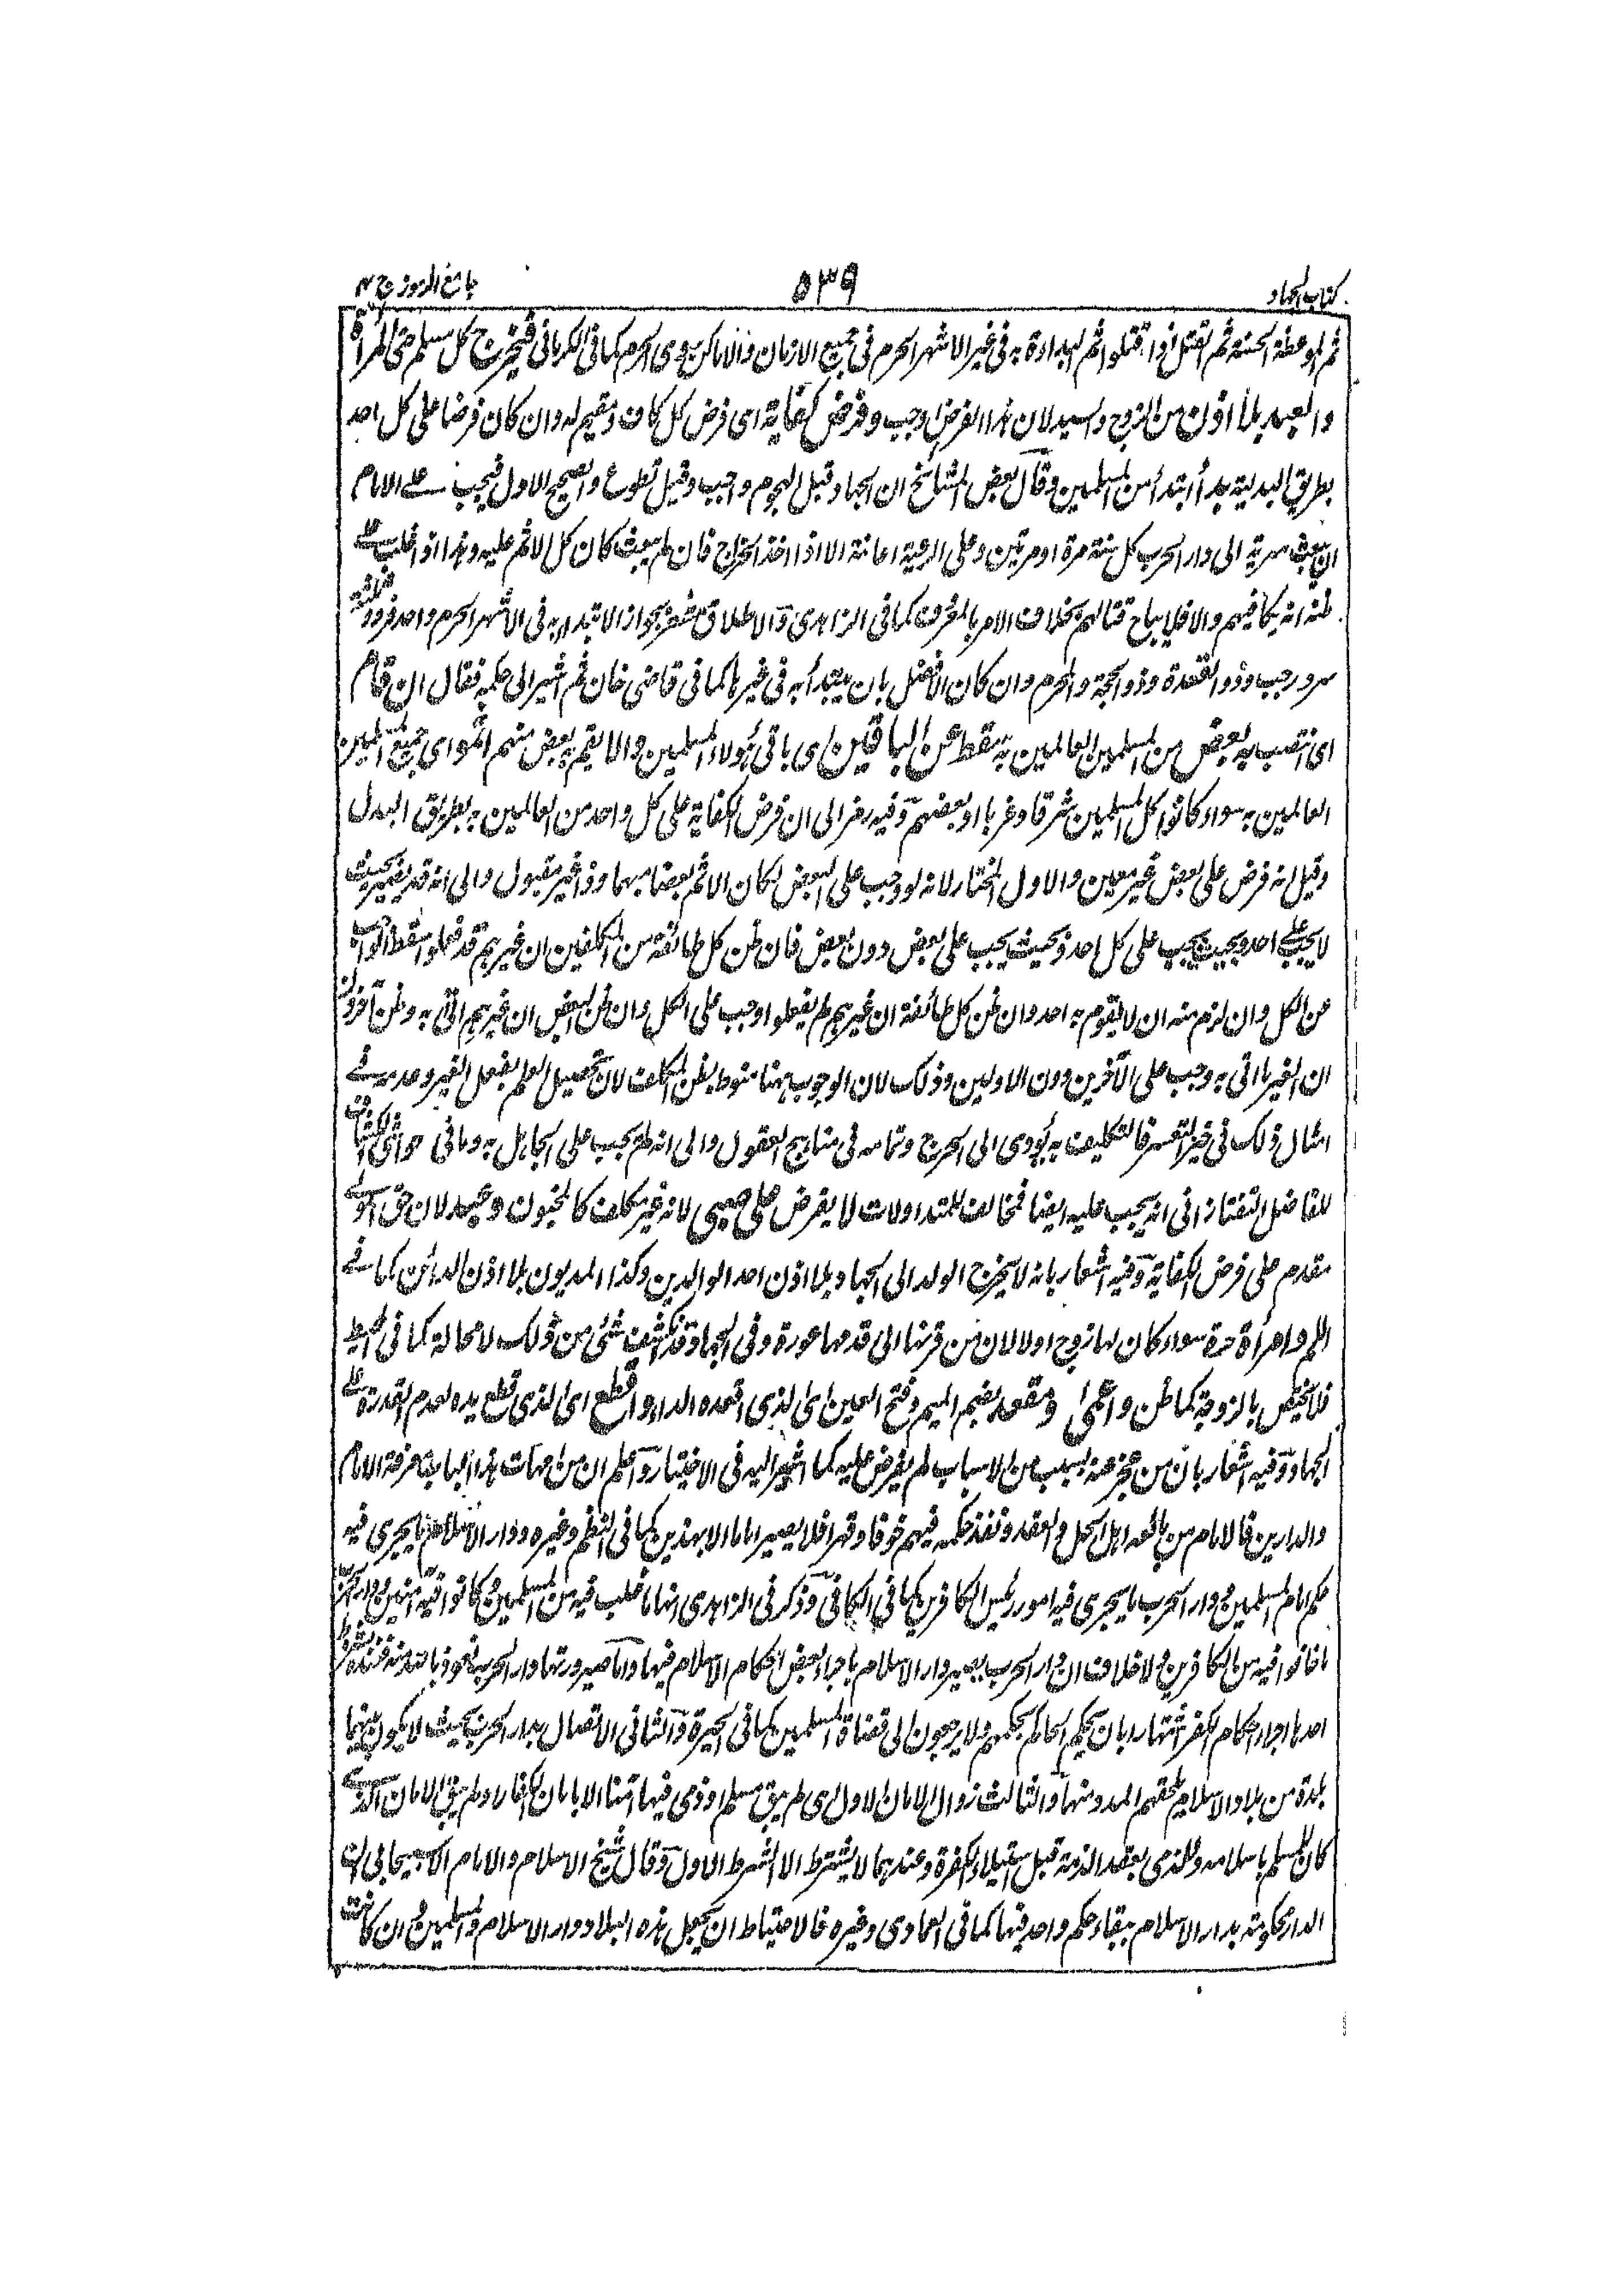 كتاب الجهاد ٥٣٩ جامع الرموز ج ٤
ثم الموعظة الحسنة ثم القتل اذا قتلوا ثم البداءة به فى غير الاشهر الحرم فى جميع الازمان والاماكن سوى الحرم كما فى الكرمانى فيخرج كل مسلم حتى المرأة
والعبد بلا اذن من الزوج والسيد لان هذا الفرض اوجب وفرض كفاية اى فرض كل كاف ومقيم له وان كان فرضا على كل احد
بطريق البدلية بدأ ابتداءً من المسلمين وقال بعض المشائخ ان الجهاد قبل الهجوم واجب وقيل تطوع والصحيح الاول فيجب على الامام
ان يبعث سرية الى دار الحرب كل سنة مرة او مرتين وعلى الرعية اعانته الا اذا اخذ الخراج فان لم يبعث كان كل الاثم عليه وهذا اذا غلب على
ظنه انه يكافيهم والا فلا يباح قتالهم بخلاف الامر بالمعروف كما فى الزاهدى والاطلاق مشعر بجواز الابتداء به فى الاشهر الحرم واحد فرد وثلثة
سرد رجب وذو القعدة وذو الحجة والمحرم وان كان الافضل بان يبدأ به فى غيرها كما فى قاضى خان ثم اشير الى حكمه فقال ان قام
اى انتصب به بعض من المسلمين العالمين به سقط عن الباقين اى باقى هؤلاء المسلمين والا يقم به بعض منهم اثموا اى جميع المسلمين
العالمين به سواء كانوا كل المسلمين شرقا وغربا او بعضهم وفيه رمز الى ان فرض الكفاية على كل واحد من العالمين به بطريق البدل
وقيل انه فرض على بعض غير معين والاول المختار لانه لو وجب على البعض لكان الاثم بعضا مبهما وذا غير مقبول والى انه قد يصير بحيث
لا يجب على احد وبحيث يجب على كل احد وبحيث يجب على بعض دون بعض فان ظن كل طائفة من المكلفين ان غيرهم قد فعلوا سقط الواجب
عن الكل وان لزم منه ان لا يقوم به احد وان ظن كل طائفة ان غيرهم لم يفعلوا وجب على الكل وان ظن البعض ان غيرهم اتى به وظن آخرون
ان الغير ما اتى به وجب على الآخرين دون الاولين وذلك لان الوجوب ههنا منوط بظن المكلف لان تحصيل العلم بفعل الغير وعدمه فى
امثال ذلك فى حيز التعسر فالتكليف به يؤدى الى الحرج وتمامه فى مناهج العقول والى انه لم يجب على الجاهل به وما فى حواشى الكشاف
للفاضل التفتازانى انه يجب عليه ايضا فمخالف للمتداولات لا يفرض على صبى لانه غير مكلف كالمجنون وعبد لان حق المولى
مقدم على فرض الكفاية وفيه اشعار بانه لا يخرج الولد الى الجهاد بلا اذن احد الوالدين وكذا المديون بلا اذن الدائن كما فى
وامرأة حرة سواء كان لها زوج او لا لان من قرنها الى قدمها عورة وفى الجهاد قد ينكشف شئ من ذلك لا محالة كما فى المحيط
فلا يختص بالزوجة كما ظن واعمى ومقعد بضم الميم وفتح العين اى الذى اقعده الداء واقطع اى الذى قطع يده لعدم القدرة على
الجهاد وفيه اشعار بان من عجز عنه بسبب من الاسباب لم يفرض عليه كما اشير اليه فى الاختيار واعلم ان من مهمات هذا الباب معرفة الامام
والدارين فالامام من بايعه اهل الحل والعقد ونفذ حكمه فيهم خوفا وقهرا فلا يصير اماما الا بهذين كما فى النظم وغيره ودار الاسلام ما يجرى فيه
حكم امام المسلمين ودار الحرب ما يجرى فيه امور رئيس الكافرين كما فى الكافى وذكر فى الزاهدى انها ما غلب فيه من المسلمين وكانوا فيه آمنين ودار الحرب
ما خافوا فيه من الكافرين ولا خلاف ان دار الحرب يصير دار الاسلام باجراء بعض احكام الاسلام فيها واما صيرورتها دار الحرب نعوذ بالله منه فعنده بشروط
احدها اجراء احكام الكفر اشتهارا بان يحكم الحاكم بحكمهم ولا يرجعون الى قضاة المسلمين كما فى الحيرة والثانى الاتصال بدار الحرب بحيث لا يكون بينهما
بلدة من بلاد الاسلام يلحقهم المدد منها والثالث زوال الامان الاول اى لم يبق مسلم او ذمى فيها آمنا الا بامان الكفار ولم يبق الامان الذى
كان للمسلم باسلامه وللذمى بعقد الذمة قبل استيلاء الكفرة وعندهما لا يشترط الا الشرط الاول وقال شيخ الاسلام والامام الاسبيجابى ان
الدار محكومة بدار الاسلام ببقاء حكم واحد فيها كما فى العمادى وغيره فالاحتياط ان يجعل هذه البلاد دار الاسلام والمسلمين وان كانت